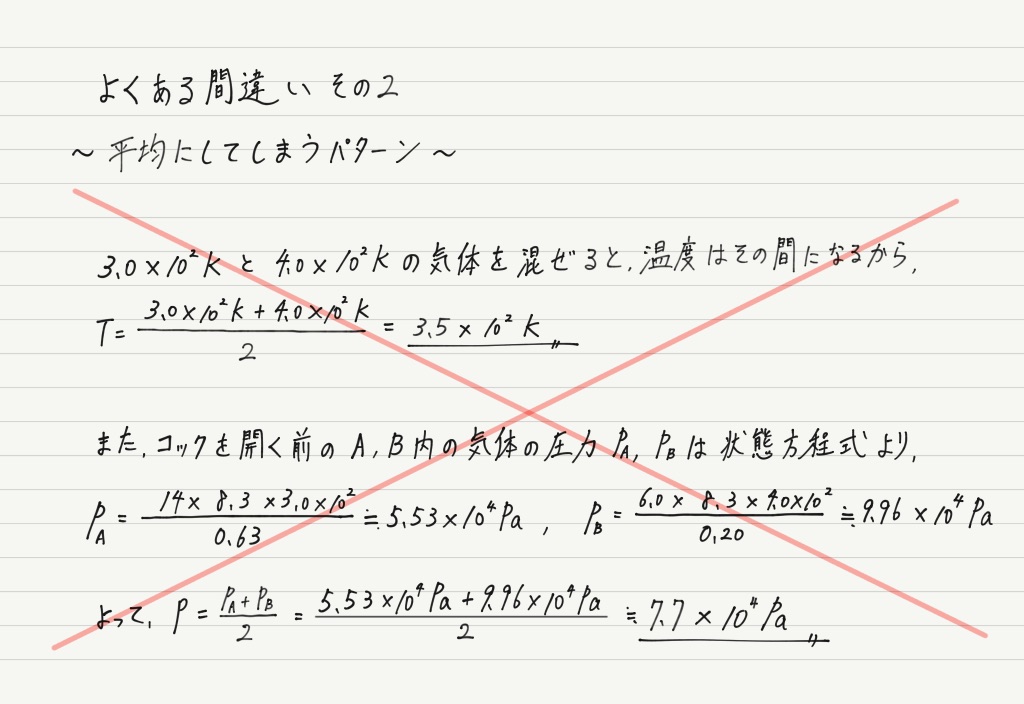 よくある間違い その2
～ 平均にしてしまうパターン ～
3.0×10²K と 4.0×10²K の気体を混ぜると、温度はその間になるから、
T = (3.0×10²K + 4.0×10²K)/2 = 3.5×10² K
また、コックを開く前のA, B内の気体の圧力 P_A, P_B は状態方程式より、
P_A = (14×8.3×3.0×10²)/0.63 ≒ 5.53×10⁴Pa , P_B = (6.0×8.3×4.0×10²)/0.20 ≒ 9.96×10⁴Pa
よって、P = (P_A+P_B)/2 = (5.53×10⁴Pa + 9.96×10⁴Pa)/2 ≒ 7.7×10⁴Pa